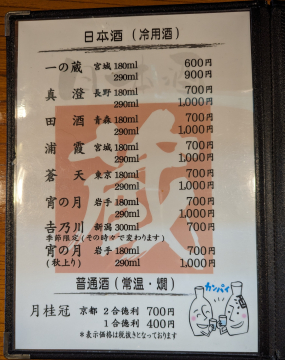 日本酒（冷用酒）
一の蔵 宮城 180ml 600円
290ml 900円
真澄 長野 180ml 700円
290ml 1,000円
田酒 青森 180ml 700円
290ml 1,000円
浦霞 宮城 180ml 700円
290ml 1,000円
蒼天 東京 180ml 700円
290ml 1,000円
宵の月 岩手 180ml 700円
290ml 1,000円
吉乃川 新潟 300ml 700円
季節限定（その時々で変わります）
宵の月 岩手 180ml 700円
（秋上り） 290ml 1,000円
蔵
普通酒（常温・燗）
月桂冠 京都 2合徳利 700円
1合徳利 400円
＊表示価格は税抜きとなっております
カンパイ
酒